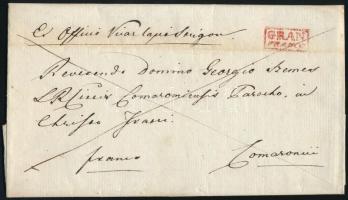 Ex Officio Vicar Capit Strigon.
GRAN
FRANCO
Reverendo Domino Georgio Nemes
L R Civit Comaromiensis Parocho, in
Christo Fratri
franco
Comaromii